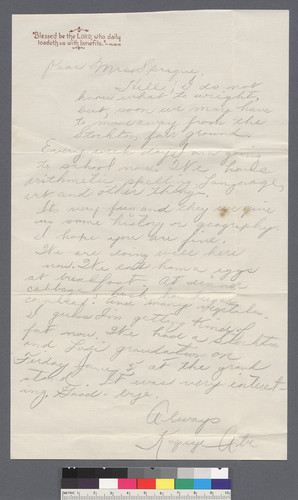 "Blessed be the LORD, who daily
loadeth us with benefits."
Dear Miss Sprague,
Hello! I do not
know what to wright,
but soon we may have
to move away from the
Stockton fair ground.
Every week day I am going
to school now. We have
arithmetic, spelling, language,
art and other things.
It very fun and they give
us some history or geography.
I hope you are fine.
We are doing well here
now. We eat ham &amp; eggs
at breakfast. At dinner
cabbage,
and many vegetables.
I guess I'm getting kind of
fat now. We had a Stockton
and Lodi graduation on
Friday June 5 at the grand
stand. It was very interest-
ing. Good-bye.
Always